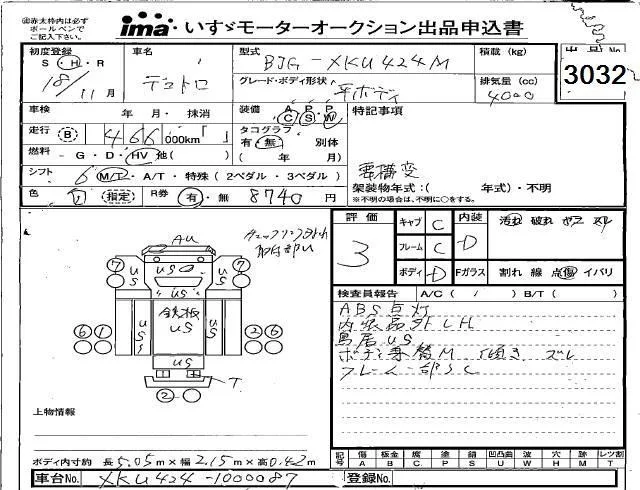 ※赤太枠内は必ず
ボールペンで
ご記入下さい。
ima いすゞモーターオークション出品申込書
初度登録
S・H・R
18/11月
車名
デュトロ
型式
BJG-XKU424M
グレード・ボディ形状
平ボディ
積載(kg)
排気量(cc)
4000
出品No.
3032
車検 年 月・抹消
装備 AC PS PW
特記事項
走行 B 466,000km「 」
タコグラフ
有・無 別体
( 年 月)
燃料 -G・D・HV 他( )
シフト 6 M/T・A/T・特殊(2ペダル・3ペダル)
要構変
架装物年式:( 年式)・不明
※不明の場合は、不明に○をする。
色 (指定)
R券 有・無 8740 円
評価
3
キャブ C
フレーム C
ボディ D
内装 D
Fガラス
汚れ 破れ ヤケ スレ
割れ 線 点傷 イバリ
検査員報告 A/C( / ) B/T( )
ABS点灯
内張品外しH
鳥居US
フレーム一部SC
AU
US
鉄板
US
T
7
7
6
1
2
6
2
上物情報
ボディ内寸約 長5.05m×幅2.15m×高0.42m
記号 傷A 板金B 腐C 塗P 錆S 凹凸曲U 波W 穴H 跡M レツ割T
車台No. XKU424-1000087
登録No.